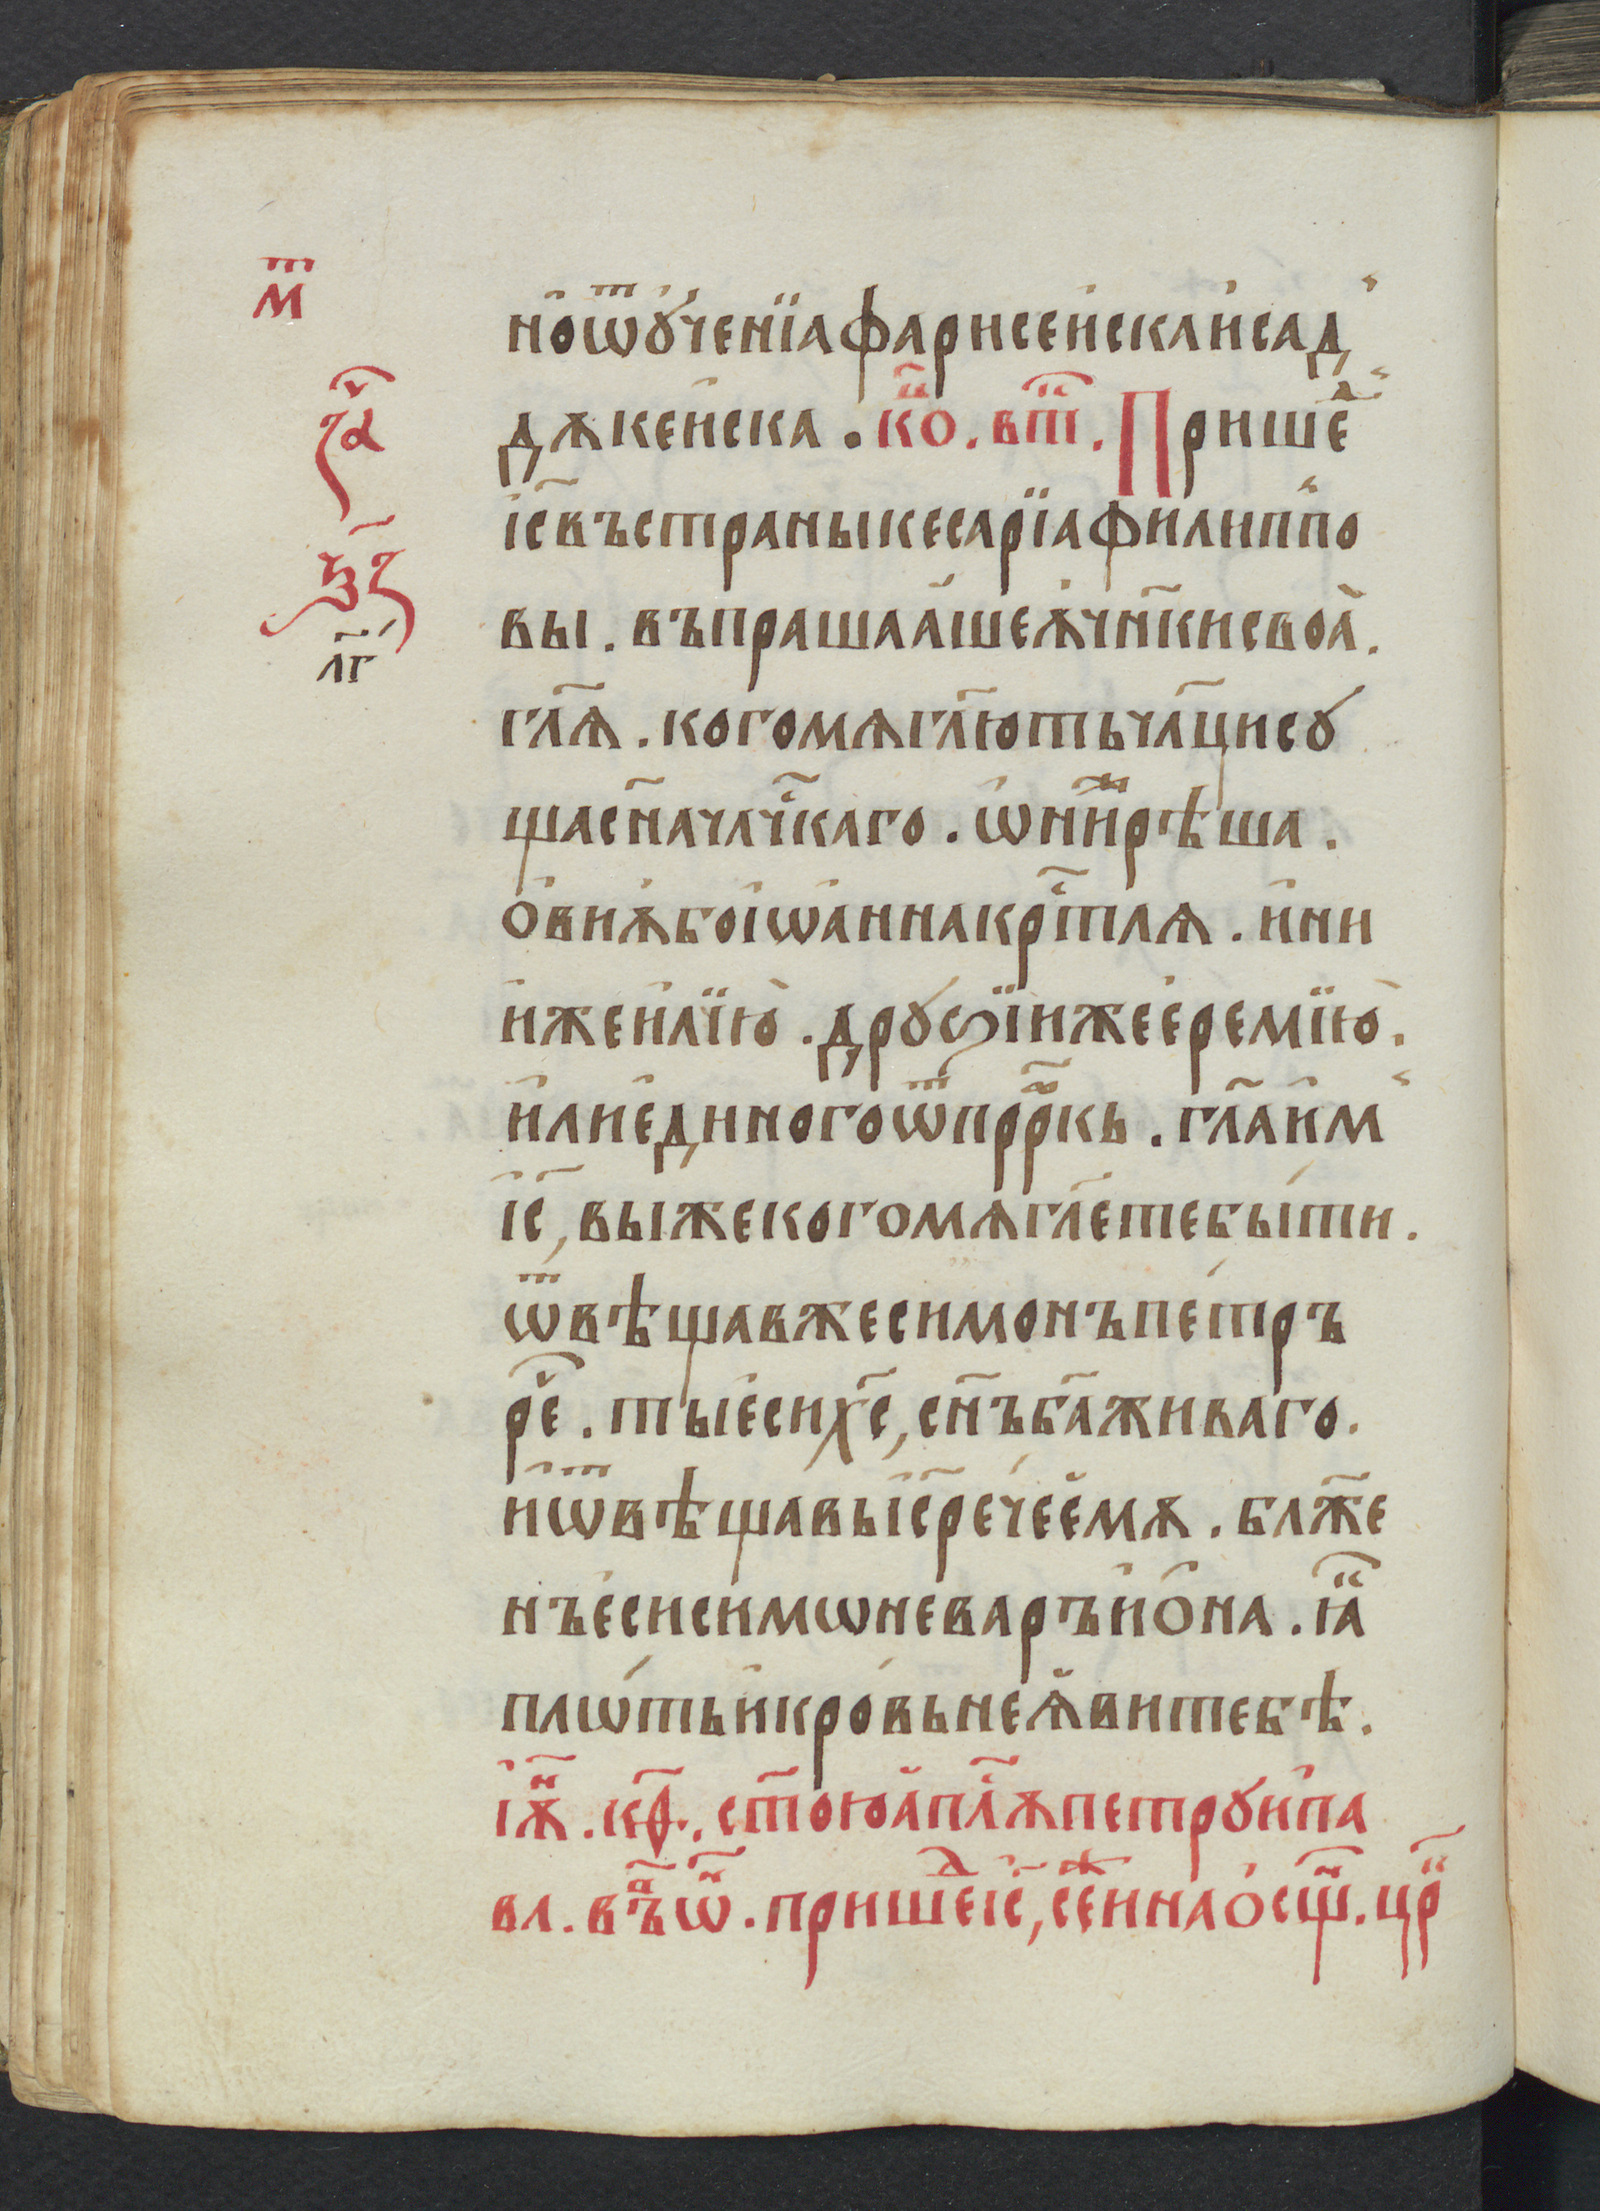 м҃т
за҃ч
ѯ҃з
л҃г
но ѿ ꙋче́нїа фарисе́иска и҆ сад
дѫке́иска . ко҃н . вт҃ . Прише́д
і҆с҃ въ страны кесарїа филип̾по
вы . въпрашааше ѫ҆чн҃ки своѧ҆ .
гл҃ѧ . кого мѧ гл҃ють чл҃ци сꙋ
ща сн҃а чл҃чкаго . ѡ҆ни́ж рѣша .
о҆ви ѫ҆бо і҆ѡа҆нна кр҃тлѧ . и҆ни
и҆же и҆лїю̀ . дрꙋѕїи же е҆ремїю̀ .
и҆ли е҆диного ѿ прр҃кь . гл҃а и҆м
і҆с҃, вы же кого мѧ гл҃ете бы́ти .
ѿвѣщав же симонъ пе́тръ
ре҃ч . ты е҆си х҃с, сн҃ъ ба҃ живаго .
и҆ ѿвѣщавы і҆с҃ рече́ е҆мѫ . блж҃е
нъ е҆си симѡне варъ и҆о҆на . ꙗ҆к҃
плѡ́ть и҆ кро́вь не ꙗ҆ви тебѣ .
і҆ѫ҃н . кѳ҃ . ст҃ою а҆пл҃ѫ петрꙋ и҆ па
вл . въ҃ ѿ҃ . пришед і҆с҃, се́ж и҆ на о҆сщ҃н . цр҃к